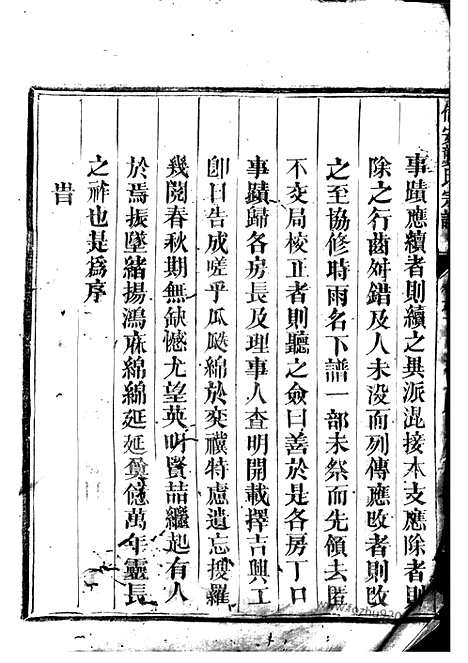 事蹟應續者則續之異派混接本支應除者則
除之行齒舛錯及人未没而列傳應改者則改
之至協修時雨名下譜一部未祭而先領去匿
不交局校正者則聽之僉曰善於是各房丁口
事蹟歸各房長及理事人查明開載擇吉興工
卽日告成嗟乎瓜瓞綿於奕禩特慮遺忘搜羅
幾閱春秋期無缺憾尤望英嗣賢喆繼起有人
於焉振墜緒揚鴻庥綿綿延延億萬年靈長
之祚也是爲序
旹